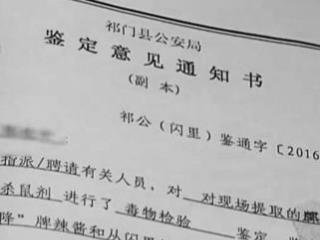 祁门县公安局
鉴定意见通知书
(副本)
祁公（闪里）鉴通字〔2016
指派/聘请有关人员，对 对现场提取的
杀鼠剂 进行了 毒物检验 鉴定
降”牌辣酱和从闪里